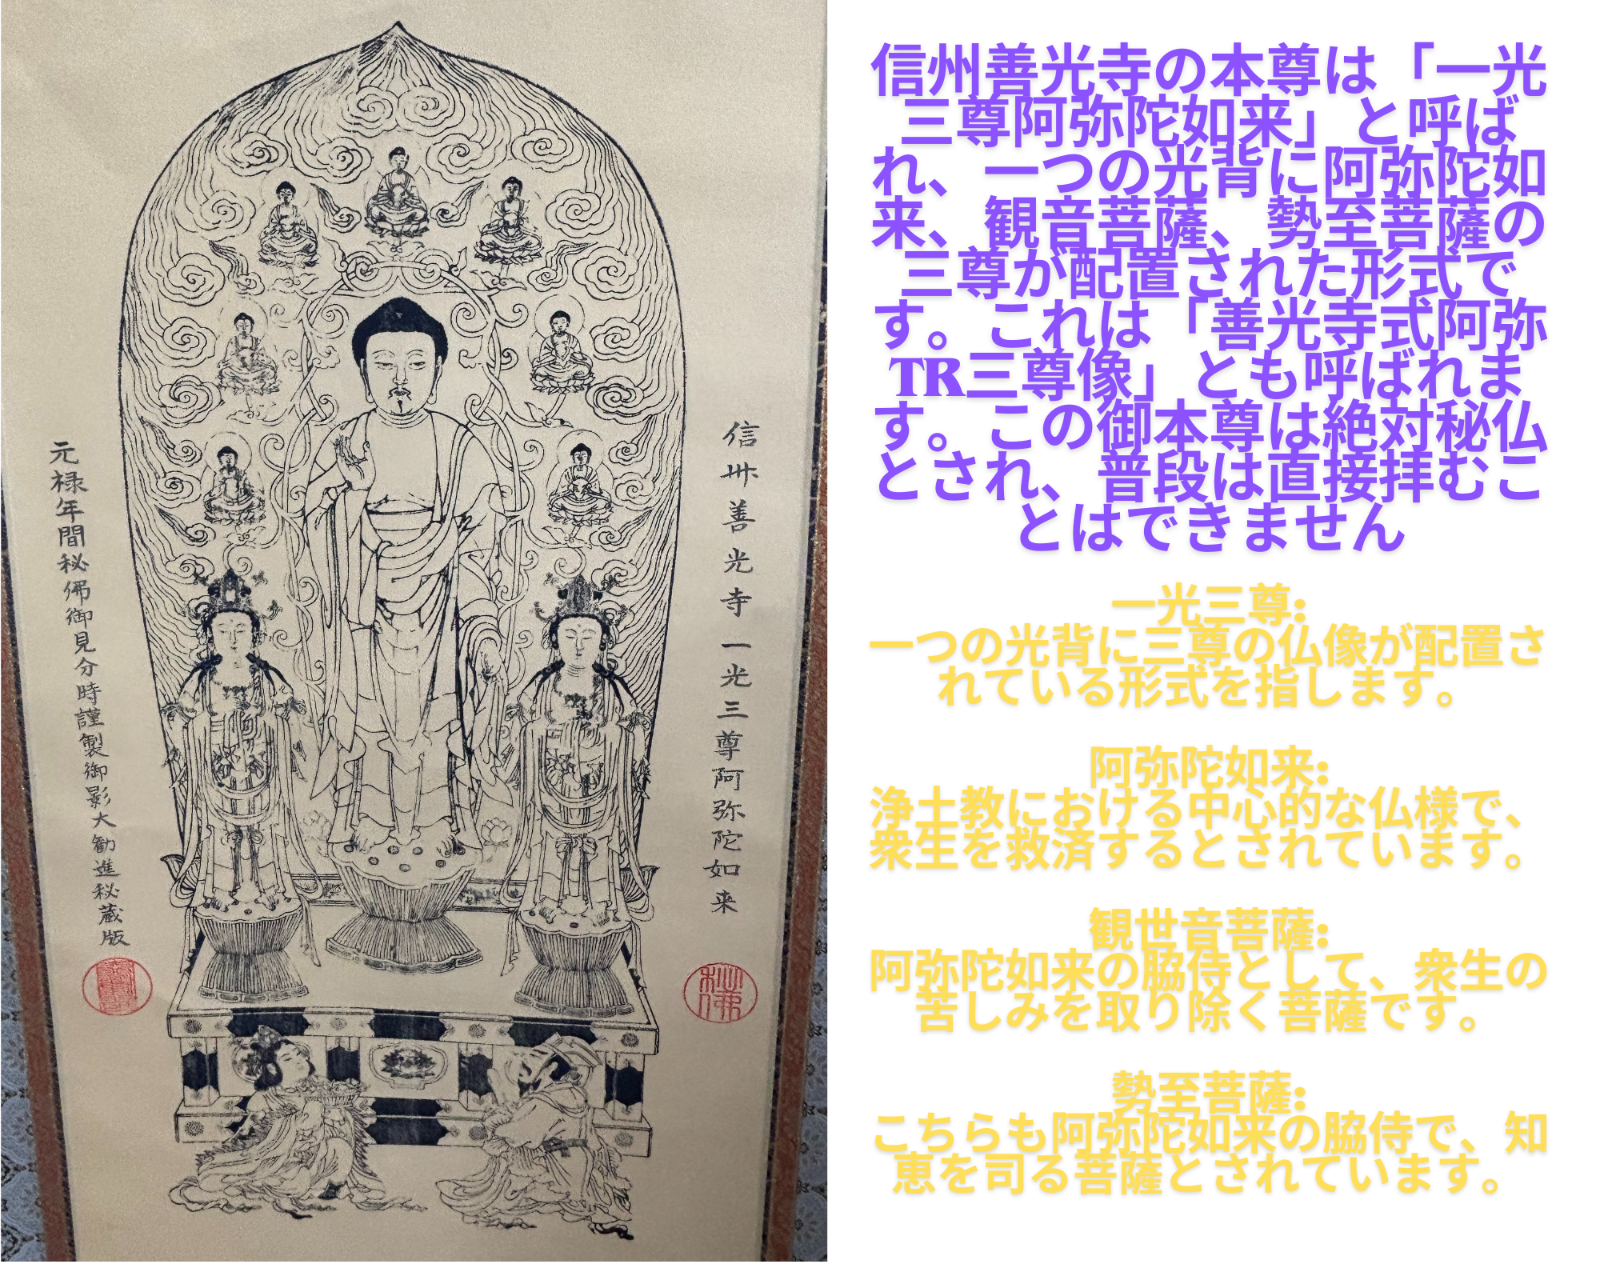 信州善光寺の本尊は「一光
三尊阿弥陀如来」と呼ば
れ、一つの光背に阿弥陀如
来、観音菩薩、勢至菩薩の
三尊が配置された形式で
す。これは「善光寺式阿弥
TR三尊像」とも呼ばれま
す。この御本尊は絶対秘仏
とされ、普段は直接拝むこ
とはできません
一光三尊:
一つの光背に三尊の仏像が配置さ
れている形式を指します。
阿弥陀如来:
浄土教における中心的な仏様で、
衆生を救済するとされています。
観世音菩薩:
阿弥陀如来の脇侍として、衆生の
苦しみを取り除く菩薩です。
勢至菩薩:
こちらも阿弥陀如来の脇侍で、知
恵を司る菩薩とされています。
信州善光寺一光三尊阿弥陀如来
元禄年間秘佛御見分時謹製御影大勧進秘蔵版